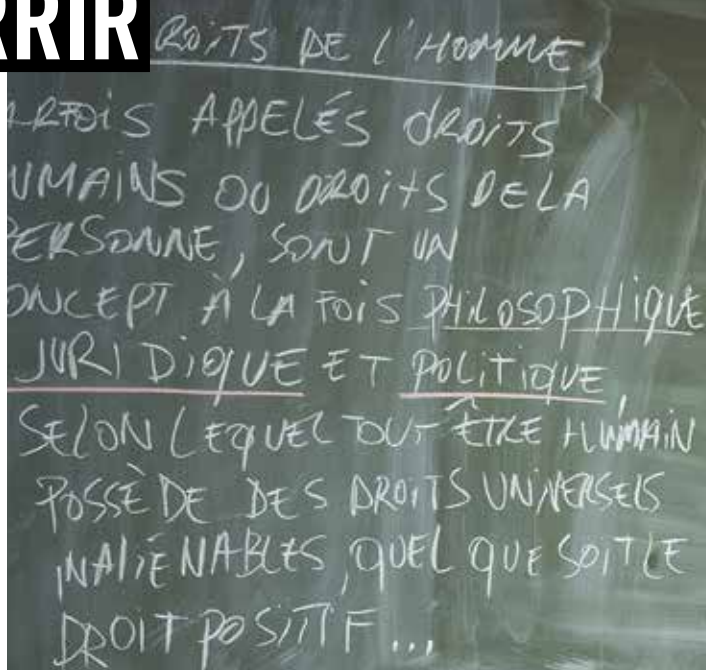 RRIR
ROITS DE L'HOMME
ARFOIS APPELÉS DROITS
UMAINS OU DROITS DE LA
PERSONNE, SONT UN
ONCEPT À LA FOIS PHILOSOPHIQUE
JURIDIQUE ET POLITIQUE,
SELON LEQUEL TOUT ÊTRE HUMAIN
POSSÈDE DES DROITS UNIVERSELS
INALIÉNABLES, QUEL QUE SOIT LE
DROIT POSITIF...